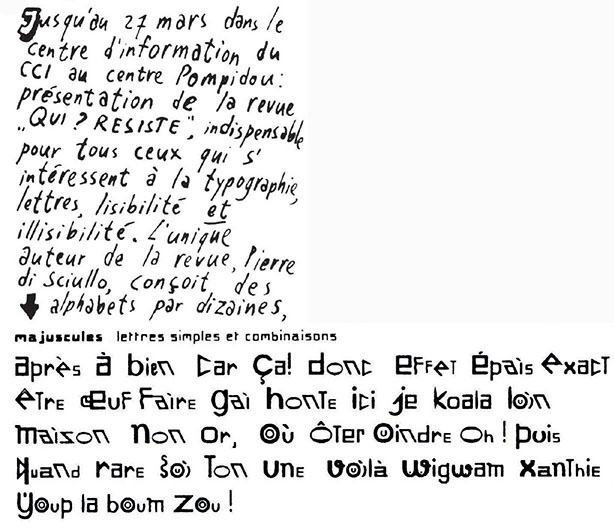 Jusqu'au 27 mars dans le
centre d'information du
CCI au centre Pompidou:
présentation de la revue
„QUI? RESISTE", indispensable
pour tous ceux qui s'
intéressent à la typographie,
lettres, lisibilité et
illisibilité. L'unique
auteur de la revue, Pierre
di Sciullo, conçoit des
alphabets par dizaines,
majuscules lettres simples et combinaisons
après à bien car ça! donc effet épais exact
être œuf faire gai honte ici je koala loin
maison non or, où ôter oindre oh! puis
quand rare soi ton une voilà wigwam xanthie
youp la boum zou!